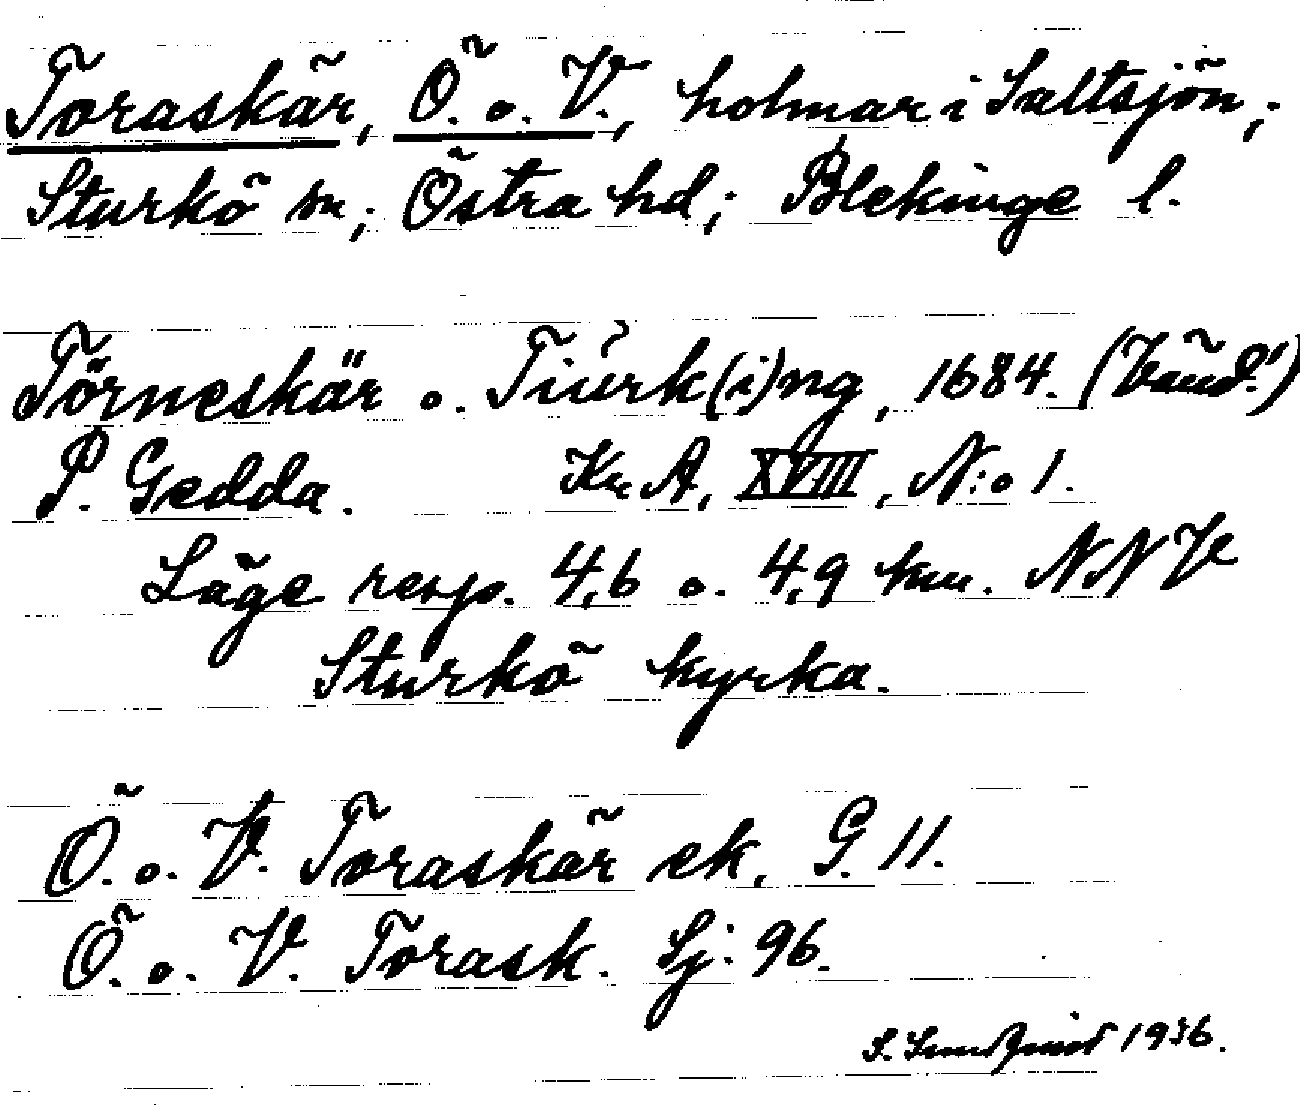 Toraskär, Ö. o. V., holmar i Saltsjön,;
Sturkö sn; Östra hd; Blekinge l.
Törneskär o. Tiurk(i)ng, 1684. (Vänd!)
P. Gedda. Kr. A, XVIII, N:o 1.
Läge resp. 4,6 o. 4,9 km. NNV
Sturkö kyrka.
Ö. o. V. Toraskär ek. G. 11.
Ö. o. V. Torask. Sj: 96.
S. 1936.